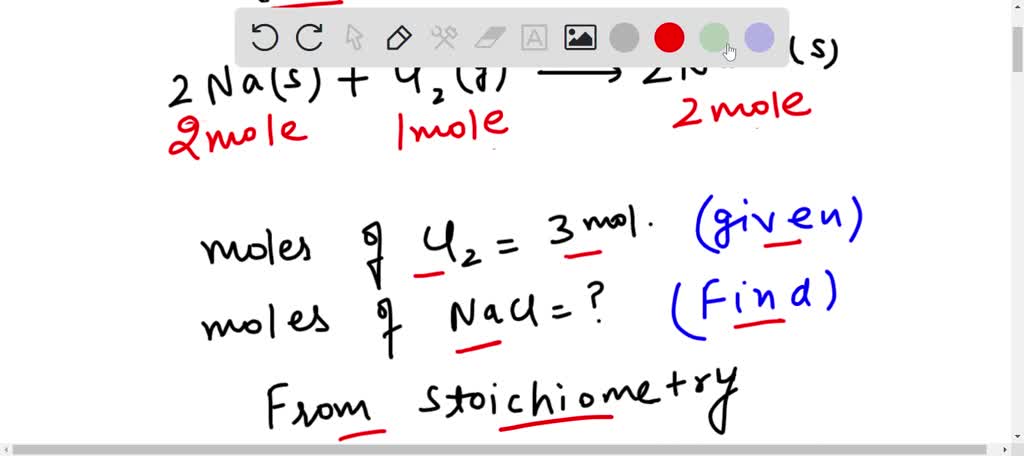 2 Na(s) + Cl₂(g) ⟶ 2N (s)
2mole 1mole 2mole
moles of Cl₂ = 3 mol. (given)
moles of NaCl = ? (Find)
From stoichiometry